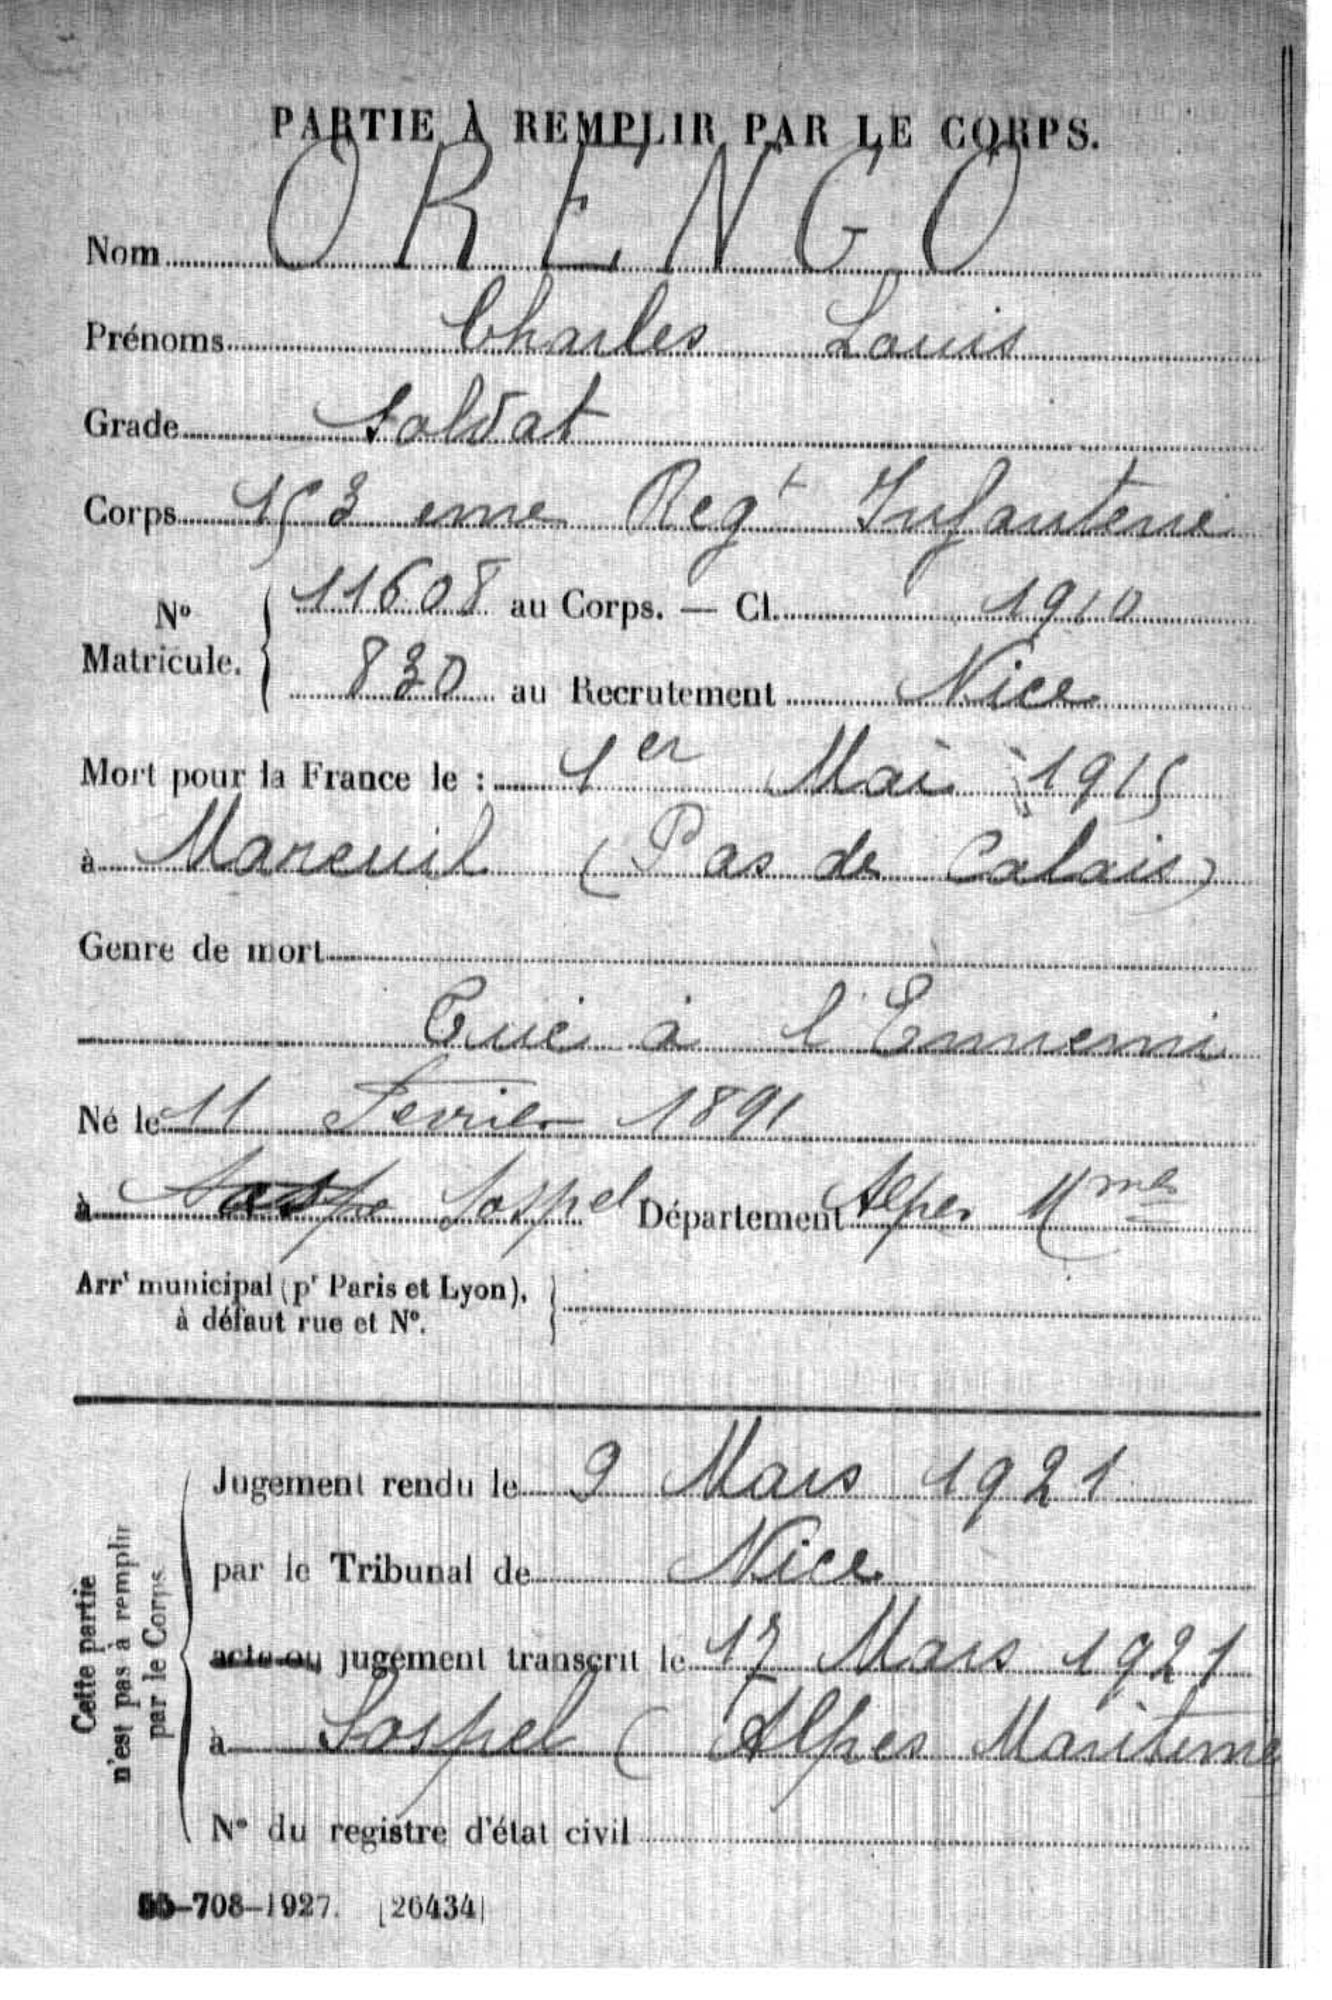 PARTIE À REMPLIR PAR LE CORPS.
Nom ORENGO
Prénoms Charles Louis
Grade Soldat
Corps 153 eme Regt Infanterie
No Matricule. 11608 au Corps. — Cl. 1910
830 au Recrutement Nice
Mort pour la France le : 1er Mai 1915
à Mareuil (Pas de Calais)
Genre de mort
Tué à l'Ennemi
Né le 11 Fevrier 1891
à Sospel Département Alpes Mmes
Arrt municipal (pr Paris et Lyon),
à défaut rue et No.
Jugement rendu le 9 Mars 1921
par le Tribunal de Nice
acte ou jugement transcrit le 17 Mars 1921
à Sospel (Alpes Maritimes
No du registre d'état civil
Cette partie
n'est pas à remplir
par le Corps.
-708-1927. [26434]